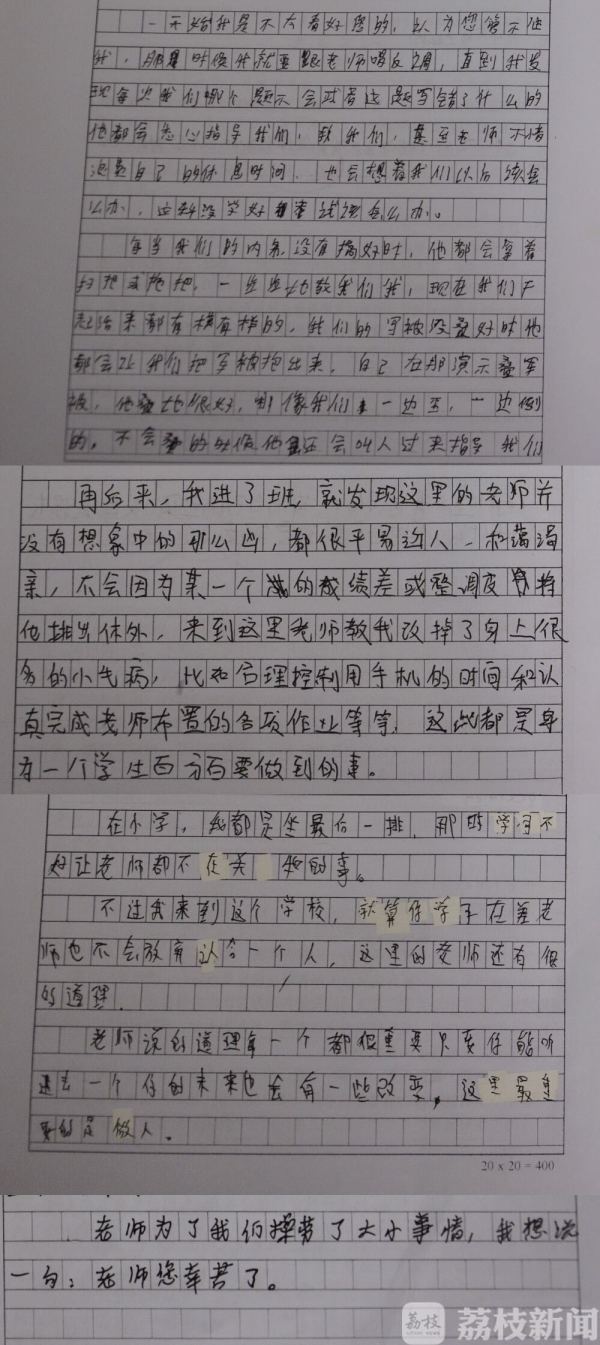 一开始我是不太看好您的,认为您管不住
我,那是时候我就要跟老师唱反调,直到我发
现每次我们哪个题不会或者这题写错了什么的
他都会悉心指导我们,鼓我们,甚至老师不惜
自己的休息时间,也会想着我们以后该怎
么办,没学好考试该怎么办。
每当我们的内务没有搞好时,他都会拿着
扫把或拖把,一步步地教我们,现在我们
起来都有模有样的,我们的军被没叠好时他
都会让我们把军被抱出来,自己在那演示叠军
被,他叠地很好,哪像我们一边歪,一边倒
的,不会叠的时候他还会叫人过来指导我们
再后来,我进了班,就发现这里的老师并
没有想象中的那么凶,都很平易近人、和蔼
亲,不会因为某一个的成绩差或整调皮将
他排出体外,来到这里老师教我改掉了身上很
多的小毛病,比如合理控制用手机的时间和认
真完成老师布置的各项作业等等,这些都是身
为一个学生百分百要做到的事。
在小学,我都是坐最后一排,那时学习不
好让老师都不在关的事。
不过我来到这个学校,就算你学在差老
师也不会放弃认合一个人,这里的老师还有很
的道理.
老师说的道理每一个都很重要只要你能听
进去一个你的未来也会有一些改变。这里最重
要的是做人。
20 x 20 = 400
老师为了我们操劳了大小事情,我想说
一句:老师您辛苦了。
荔枝
荔枝新闻